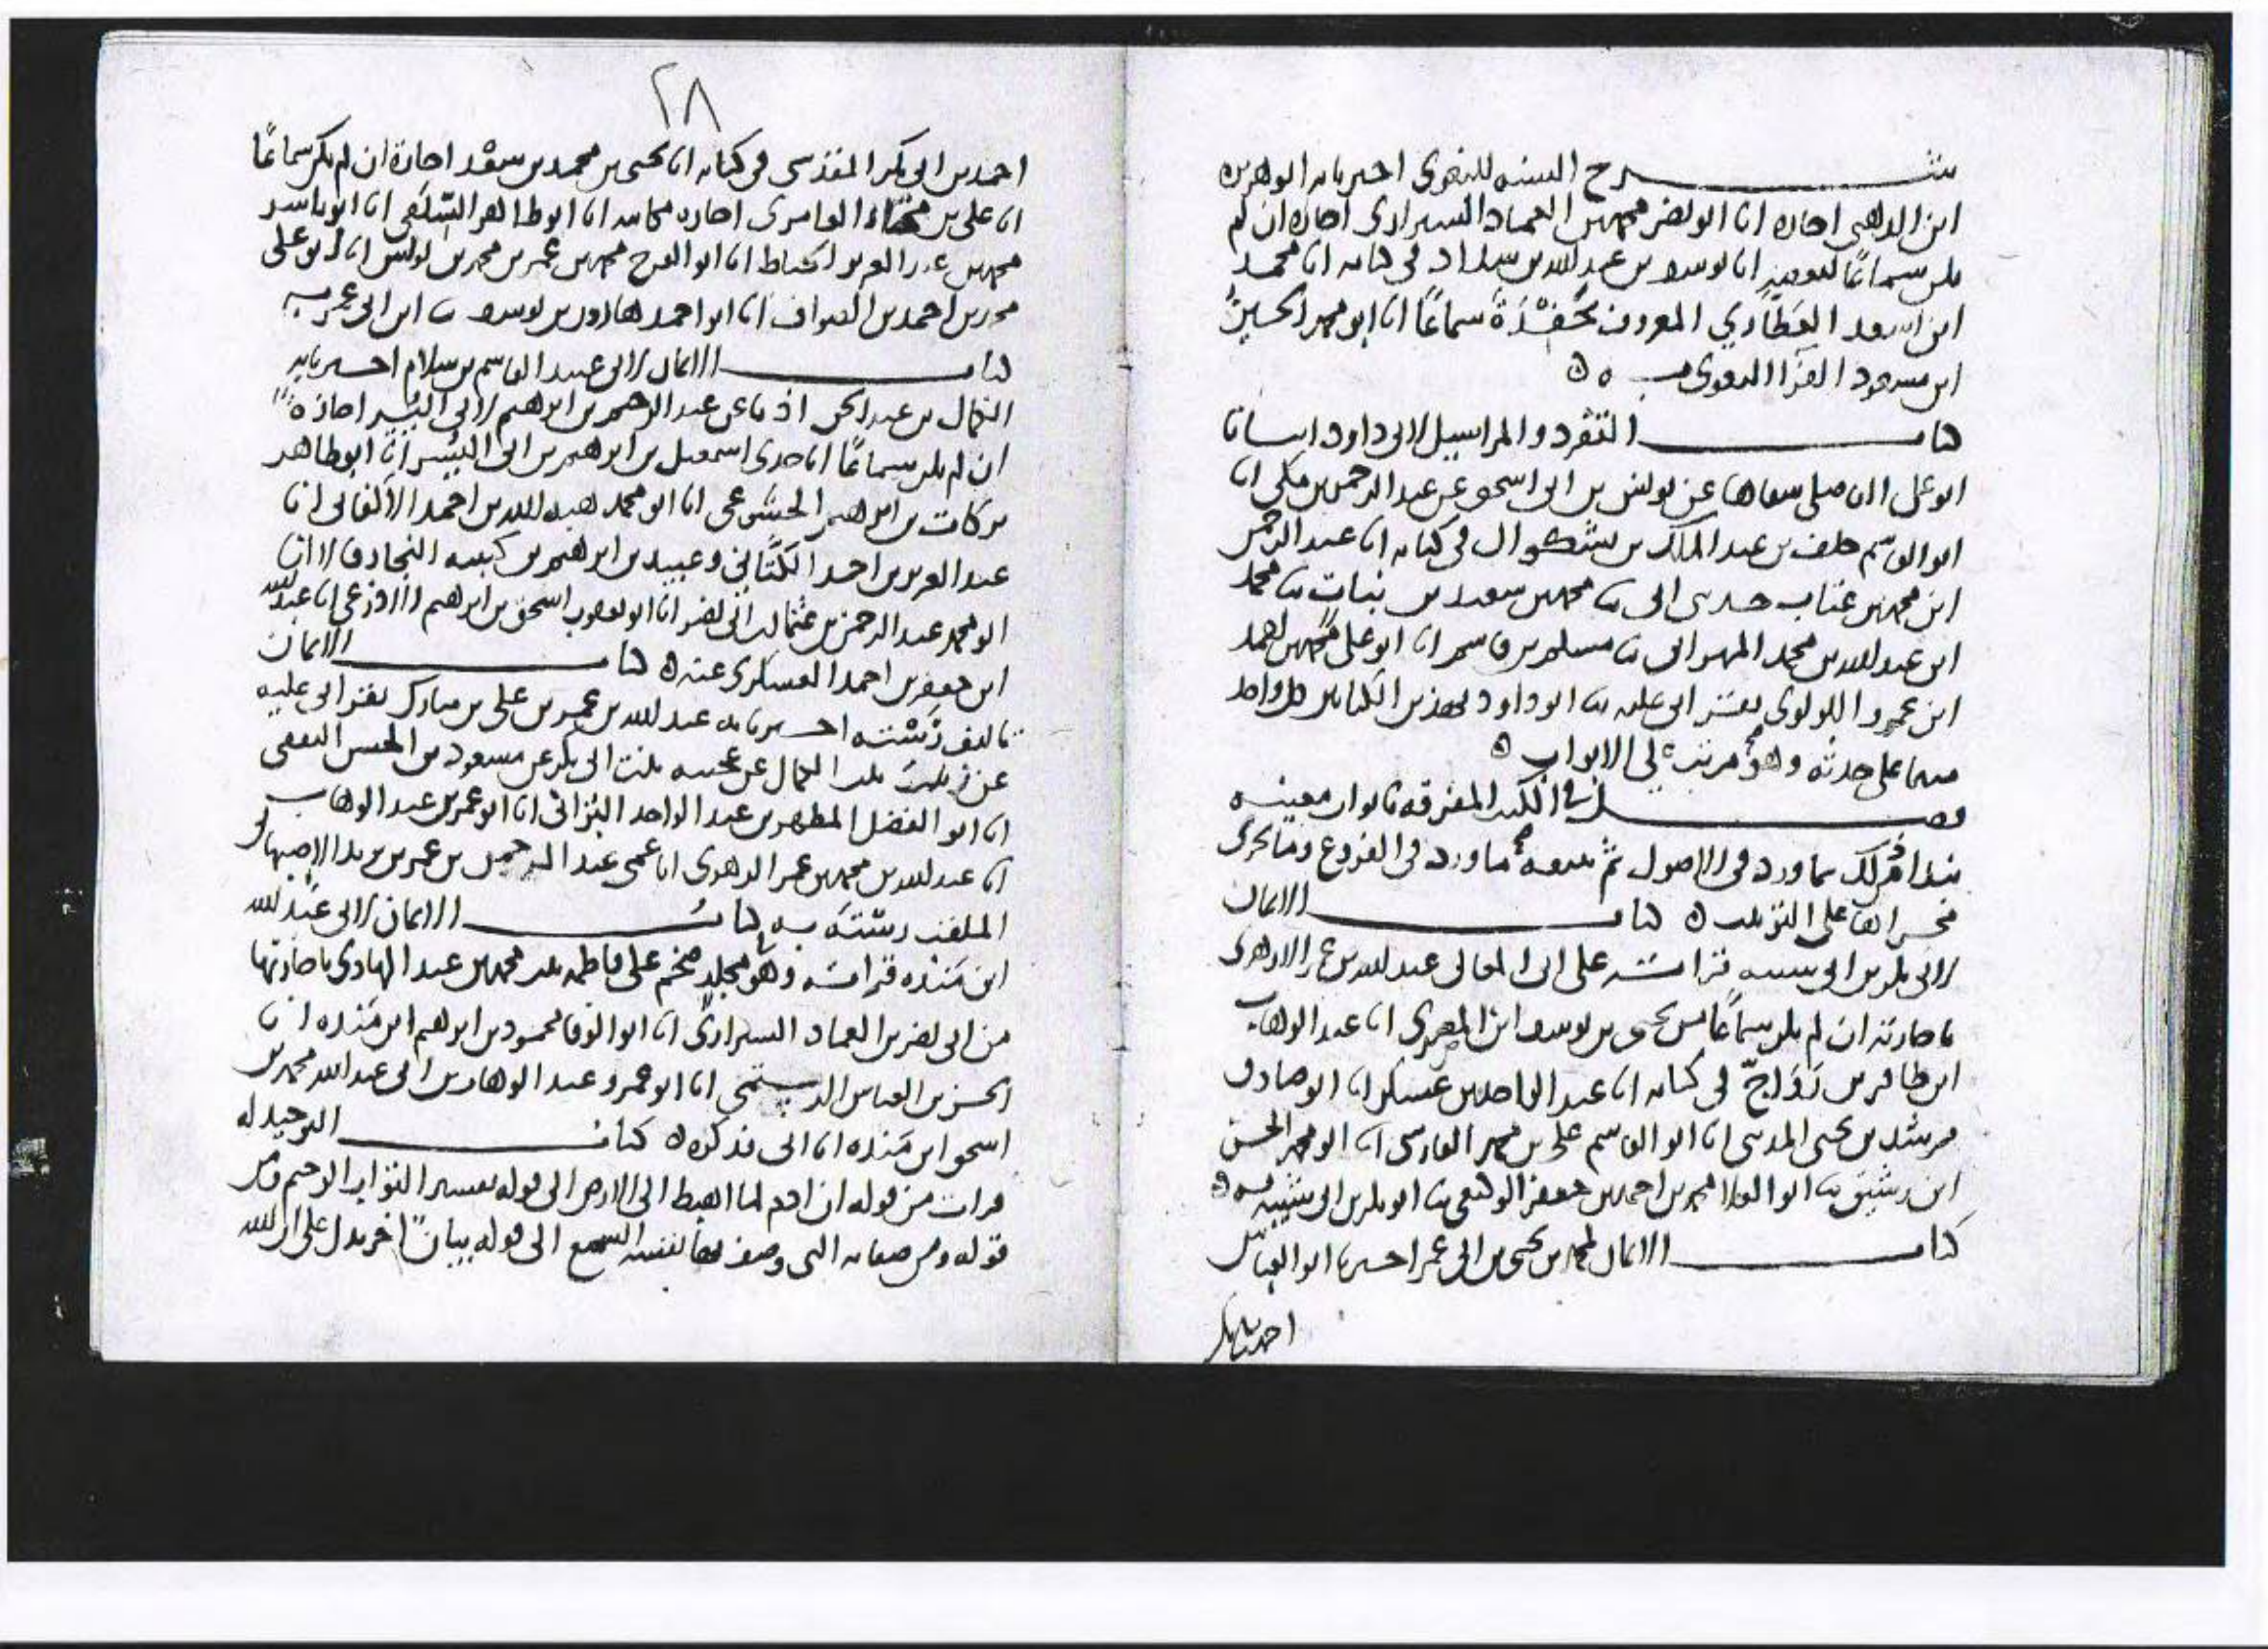 شرح السنه للبغوى اخبرنا به ابو هريره
ابن الذهبى اجازه انا ابو نصر محمد بن العماد الشيرازى اجازه ان لم
يكن سماعًا لبعضه انا يوسف بن عبد الله بن شداد فى كتابه انا محمد
ابن اسعد العَطَّاري المعروف بحَفَدَة سماعًا انا ابو محمد الحسينُ
ابن مسعود الفرّا البغوى به ه
كتاب التفرد والمراسيل لابى داود انبانا
ابو على الفاضلى شفاها عن يونس بن ابى اسحق عن عبد الرحمن بن مكى انا
ابو القاسم خلف بن عبد الملك بن بشكوال فى كتابه انا عبد الرحمن
ابن محمد بن عتاب حدثنى ابى ثنا محمد بن سعيد بن نبات ثنا محمد
ابن عبد الله بن محمد المهرانى ثنا مسلمه بن قاسم انا ابو على محمد بن احمد
ابن عمرو اللولوى بقراتى عليه ثنا ابو داود بهذين الكتابين كل واحد
منهما على حدته وهو مرتب على الابواب ه
فصل فى الكتب المفرقه بابواب معينه
نبدا من ذلك بما ورد فى الاصول ثم نتبعه ما ورد فى الفروع وما جرى
مجراها على الترتيب ه كتاب الايمان
لابى بكر بن ابى شيبه قراته على ابى المعالى عبد الله بن عمر الازهرى
باجازته ان لم يكن سماعًا من يحيى بن يوسف ابن المصرى انا عبد الوهاب
ابن ظافر بن رَوَاجّ فى كتابه انا عبد الواحد بن عسكر انا ابو صادق
مرشد بن يحيى المدينى انا ابو القاسم على بن محمد الفارسى انا ابو محمد الحسن
ابن رشيق ثنا ابو العلا محمد بن احمد بن جعفر الوكيعى ثنا ابو بكر بن ابى شيبه به ه
كتاب الايمان لمحمد بن يحيى بن ابى عمر اخبرنا ابو العباس
احمد بن ابى بكر
٢٨
احمد بن ابى بكر المقدسى فى كتابه انا يحيى بن محمد بن سعْد اجازة ان لم يكن سماعًا
انا على بن مختار العامرى اجازه مكاتبه انا ابو طاهر السِّلَفى انا ابو ياسر
محمد بن عبد العزيز الخياط انا ابو الفرج محمد بن عمر بن محمد بن يونس انا ابو على
محمد بن احمد بن الصواف انا ابو احمد هارون بن يوسف ثنا ابن ابى عمر به
كتاب الايمان لابى عبيد القاسم بن سلام اخبرنا به
الكمال بن عبد الحق اذنا عن عبد الرحمن بن ابرهيم بن ابى اليُسْر اجازة
ان لم يكن سماعًا انا جدى اسمعيل بن ابرهيم بن ابى اليُسْر انا ابو طاهر
بركات بن ابرهيم الخُشُوعى انا ابو محمد هبه الله بن احمد الاكفانى انا
عبد العزيز بن احمد الكتَّانى وعبيد بن ابرهيم بن كبيبه النجار قالا انا
ابو محمد عبد الرحمن بن عثمان بن ابى نصر انا ابو يعقوب اسحق بن ابرهيم الاذرعى انا عبد الله
ابن جعفر بن احمد العسكرى عنه ه كتاب الايمان
تاليف رُسْته اخبرنا به عبد الله بن عمر بن على بن مبارك بقراتى عليه
عن زينب بنت الكمال عن عجيبه بنت ابى بكر عن مسعود بن الحسن الثقفى
انا ابو الفضل المطهر بن عبد الواحد البُزانى انا ابو عمر بن عبد الوهاب
انا عبد الله بن محمد بن عمر الزهرى انا عمى عبد الرحمن بن عمر بن يزيد الاصبهانى
الملقب رسته به كتاب الايمان لابى عَبْد الله
ابن مَنْده قراته وهو مجلد ضخم على فاطمه بنت محمد بن عبد الهادى باجازتها
من ابى نصر بن العماد الشيرازى انا ابو الوفا محمود بن ابرهيم ابن مَنْده انا
الحسن بن العباس الرستمى انا ابو عمرو عبد الوهاب بن ابى عبد الله محمد بن
اسحق ابن مَنْده انا ابى فذكره ه كتاب التوحيد له
قرات من قوله ان ادم لما اهبط الى الارض الى قوله تفسير التواب الرحيم ومن
قوله ومن صفاته التى وصف بها نفسه السمع الى قوله بيان اخر يدل على ان الله